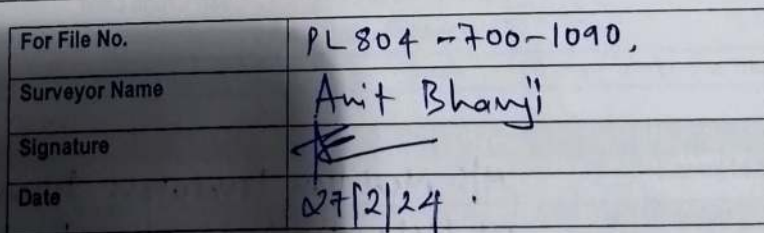 For File No. PL804-700-1090,
Surveyor Name Amit Bhanji
Signature
Date 27/2/24.